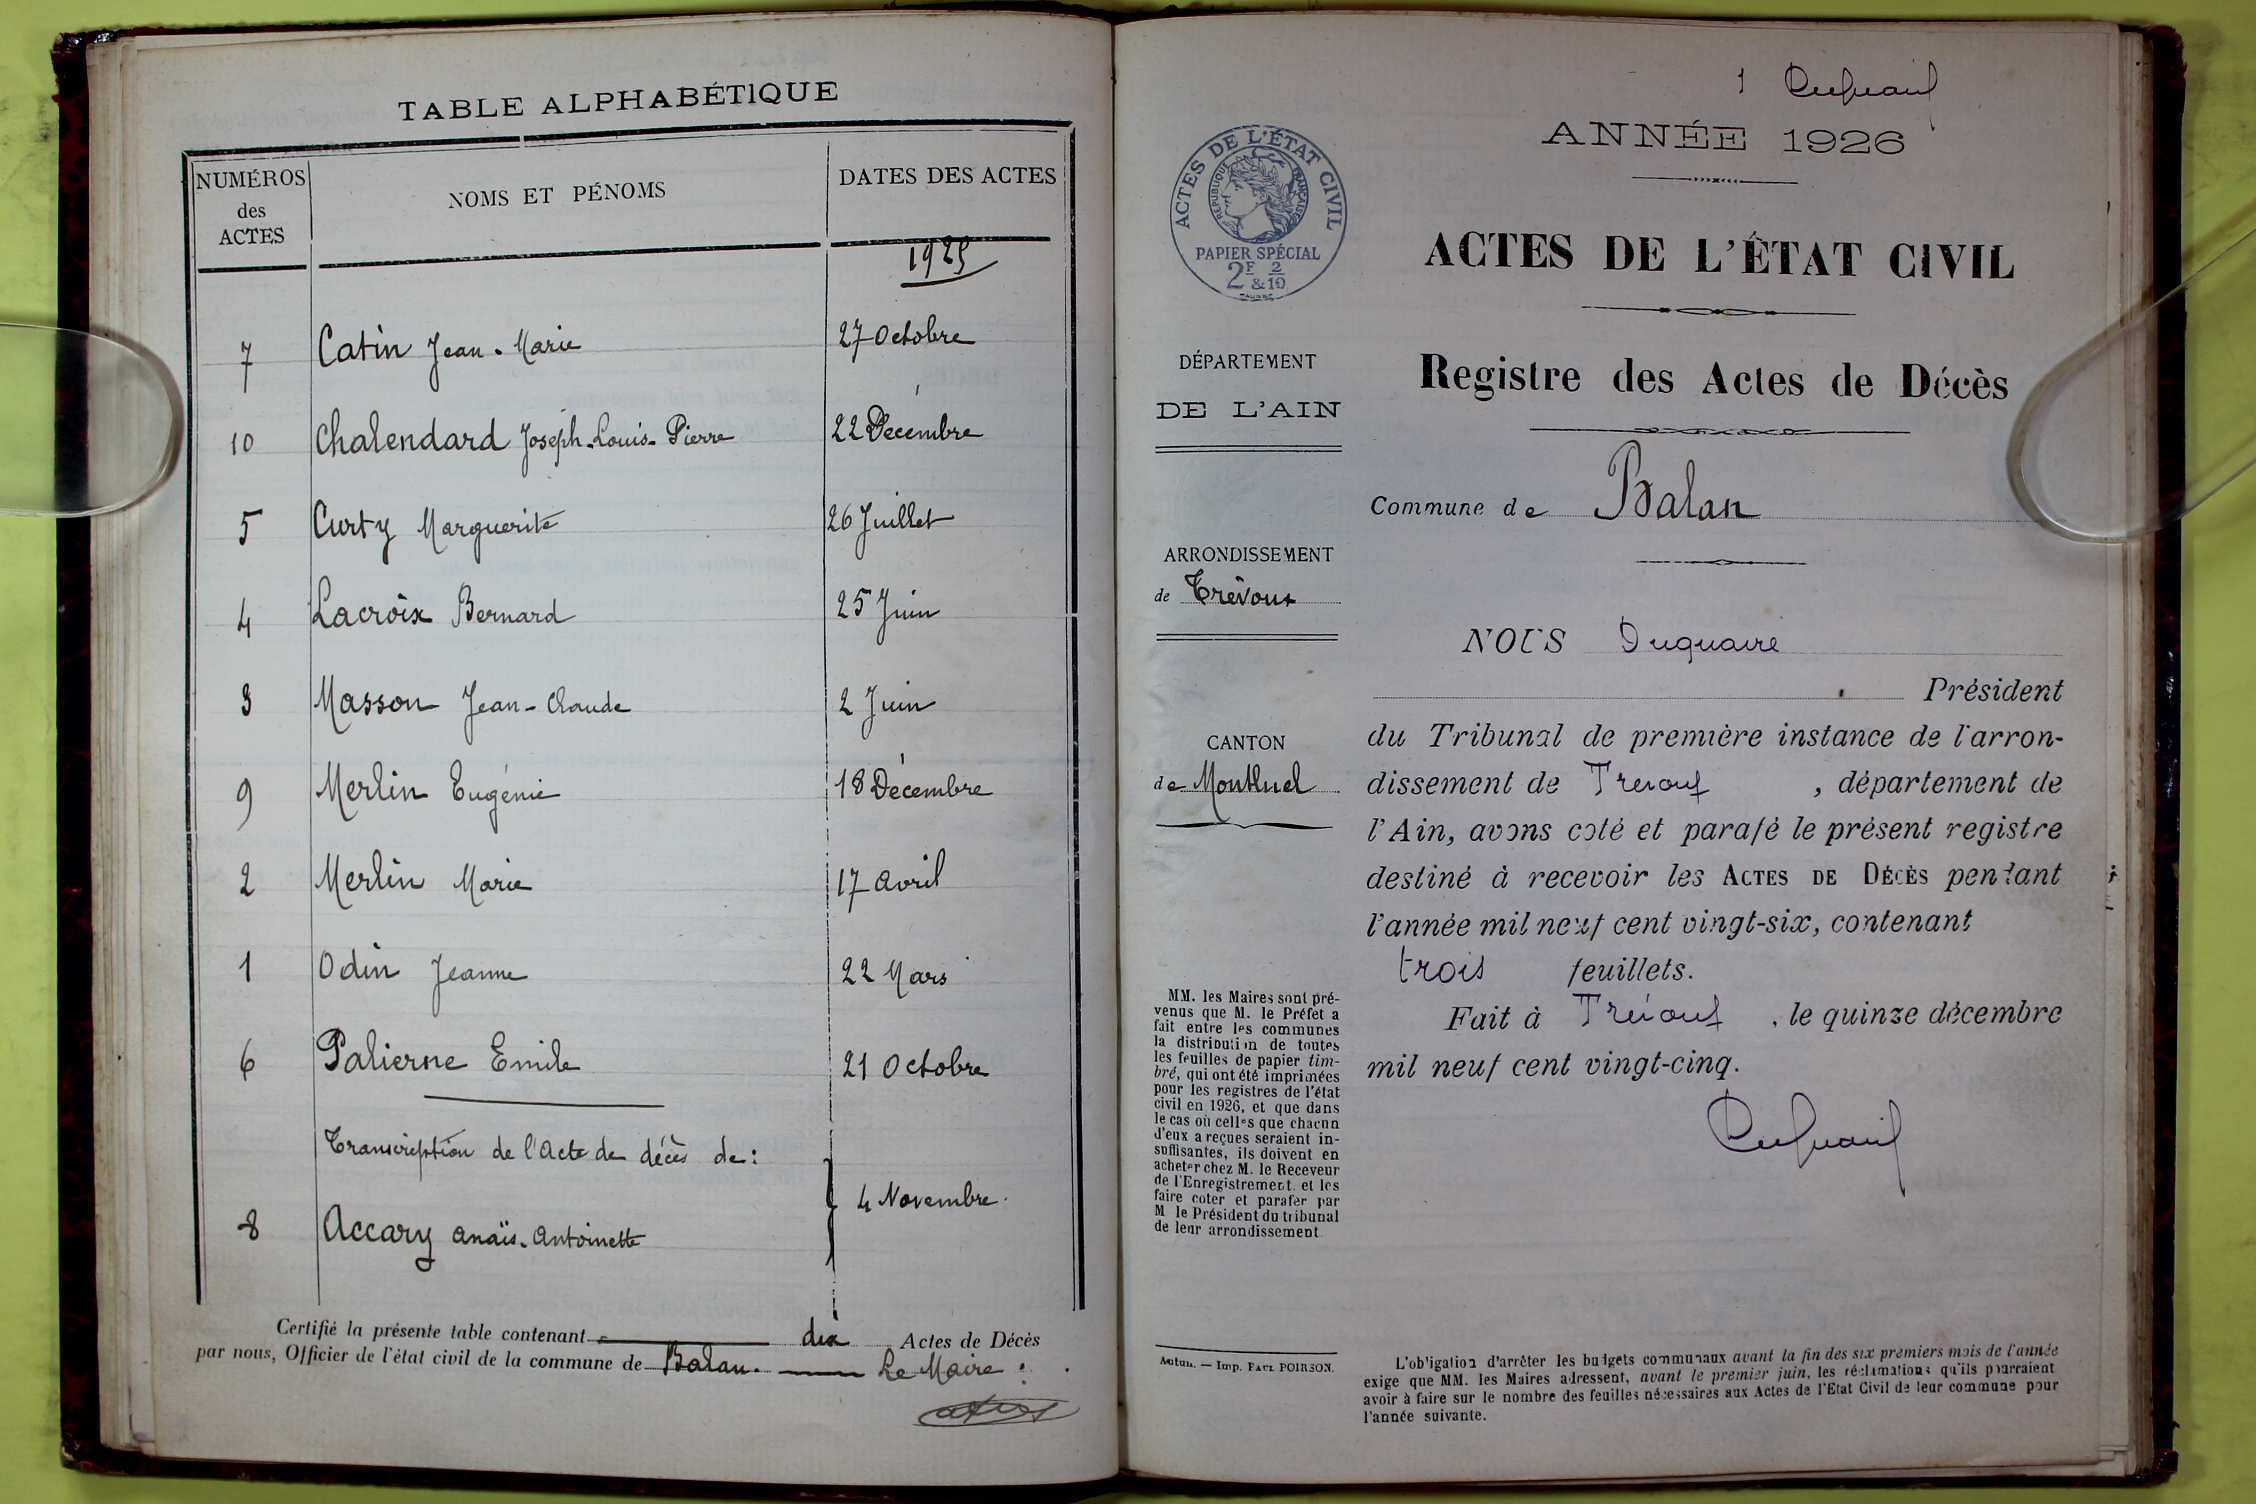 TABLE ALPHABÉTIQUE
NUMÉROS des ACTES
NOMS ET PÉNOMS
DATES DES ACTES
1925
7 Catin Jean-Marie 27 Octobre
10 Chalendard Joseph-Louis-Pierre 22 Décembre
5 Curty Marguerite 26 Juillet
4 Lacroix Bernard 25 Juin
3 Masson Jean-Claude 2 Juin
9 Merlin Eugénie 18 Décembre
2 Merlin Marie 17 avril
1 Odin Jeanne 22 Mars
6 Palierne Emile 21 Octobre
Transcription de l'Acte de décès de :
8 Accary Anaïs-Antoinette 4 Novembre.
Certifié la présente table contenant dix Actes de Décès
par nous, Officier de l'état civil de la commune de Balan. Le Maire :
1
ANNÉE 1926
ACTES DE L'ÉTAT CIVIL
RÉPUBLIQUE FRANÇAISE
PAPIER SPÉCIAL
2F & 2/10
ACTES DE L'ÉTAT CIVIL
Registre des Actes de Décès
DÉPARTEMENT
DE L'AIN
Commune de Balan
ARRONDISSEMENT
de Trévoux
CANTON
de Montluel
MM. les Maires sont pré-
venus que M. le Préfet a
fait entre les communes
la distribution de toutes
les feuilles de papier tim-
bré, qui ont été imprimées
pour les registres de l'état
civil en 1926, et que dans
le cas où celles que chacun
d'eux a reçues seraient in-
suffisantes, ils doivent en
acheter chez M. le Receveur
de l'Enregistrement. et les
faire coter et parafer par
M le Président du tribunal
de leur arrondissement.
Autun. — Imp. PAUL POIRSON.
NOUS Duquaire
Président
du Tribunal de première instance de l'arron-
dissement de Trévoux, département de
l'Ain, avons coté et parafé le présent registre
destiné à recevoir les ACTES DE DÉCÈS pendant
l'année mil neuf cent vingt-six, contenant
trois feuillets.
Fait à Trévoux, le quinze décembre
mil neuf cent vingt-cinq.
L'obligation d'arrêter les budgets communaux avant la fin des six premiers mois de l'année
exige que MM. les Maires adressent, avant le premier juin, les réclamations qu'ils pourraient
avoir à faire sur le nombre des feuilles nécessaires aux Actes de l'Etat Civil de leur commune pour
l'année suivante.